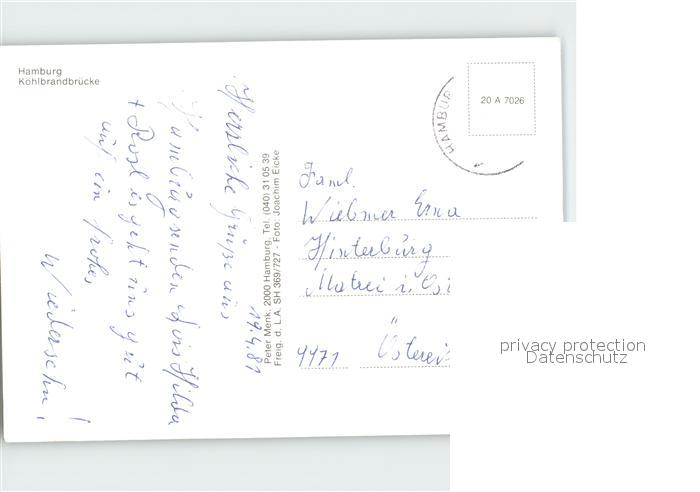 Hamburg
Köhlbrandbrücke
HAMBUR
20 A 7026
Herzliche Grüße aus
Hamburg senden Lois Hilda
+ Rosl es geht uns gut
auf ein frohes
Wiedersehn!
19.4.81
Peter Menk, 2000 Hamburg, Tel. (040) 31 05 39
Freig. d. L.A. SH 369/727 - Foto: Joachim Eicke
Faml.
Wiebmer Erna
Hinterburg
Matrei i. Os
Österei
privacy protection
Datenschutz